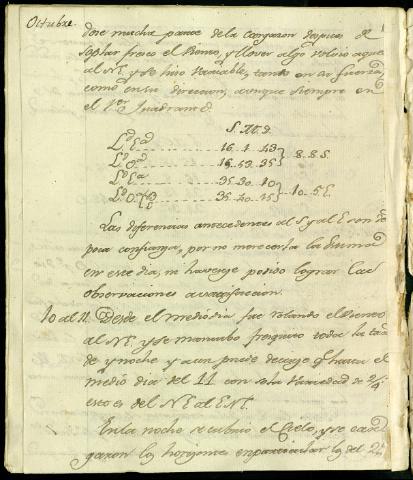 Octubre.
dose mucha parte de la Cargazon despues de
soplar fresco el Viento, y llover algo volvio aque
al NE. y se hizo Variable, tanto en su fuerza
como en su direccion, aunque siempre en
el 1er Quadrante.
S. M. g.
Ld. Ea. 16.. 1.. 43
Ld. Oa. 16.. 53.. 35 } 8.. 8. S.
Lo. Ea. 35.. 30.. 10
Lo. O. 35.. 20.. 15 } 10.. 5. E.
Las diferencias antecedentes al S y al E son de
poca confianza, por no merecerla la Estima
en este dia, ni haverse podido lograr las
observaciones a satisfaccion.
10 al 11. Desde el medio dia fue rolando el Viento
al NE. y se mantubo fresquito toda la tar
de y noche y aun puede decirse qe. hasta el
medio dia del 11 con sola Variedad de 2/4
esto es del NE al ENE.
En la noche se cubrio el Cielo, y se car
garon los horizontes en particular los del 2o.